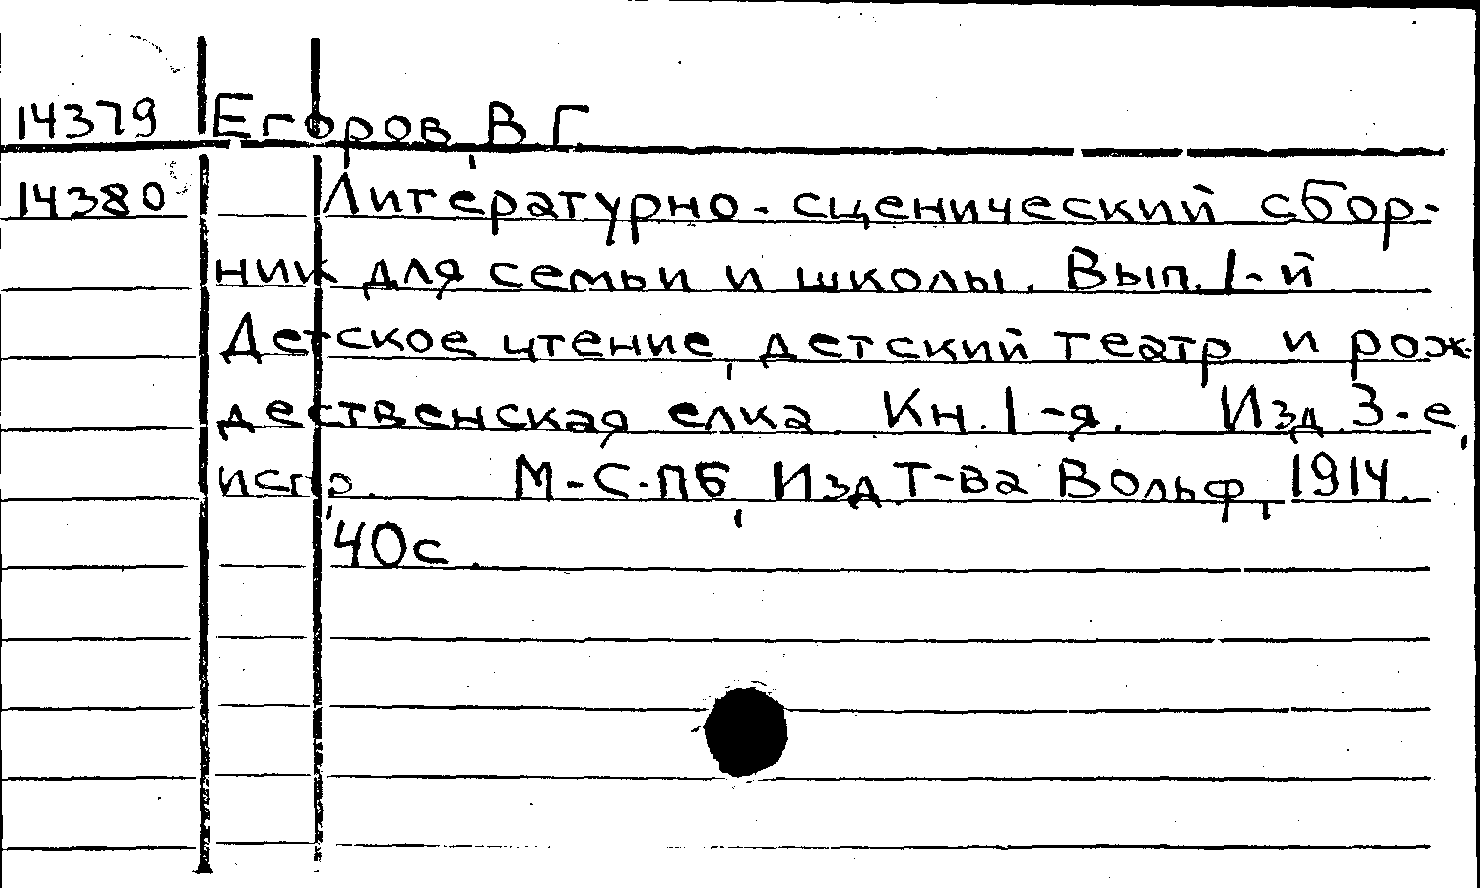 14379 Егоров, В.Г.
14380 Литературно-сценический сбор-
ник для семьи и школы. Вып. 1-й
Детское чтение, детский театр и рож-
дественская елка. Кн. 1-я. Изд. 3-е,
испр. М-С-ПБ, Изд. Т-ва Вольф, 1914.
40с.